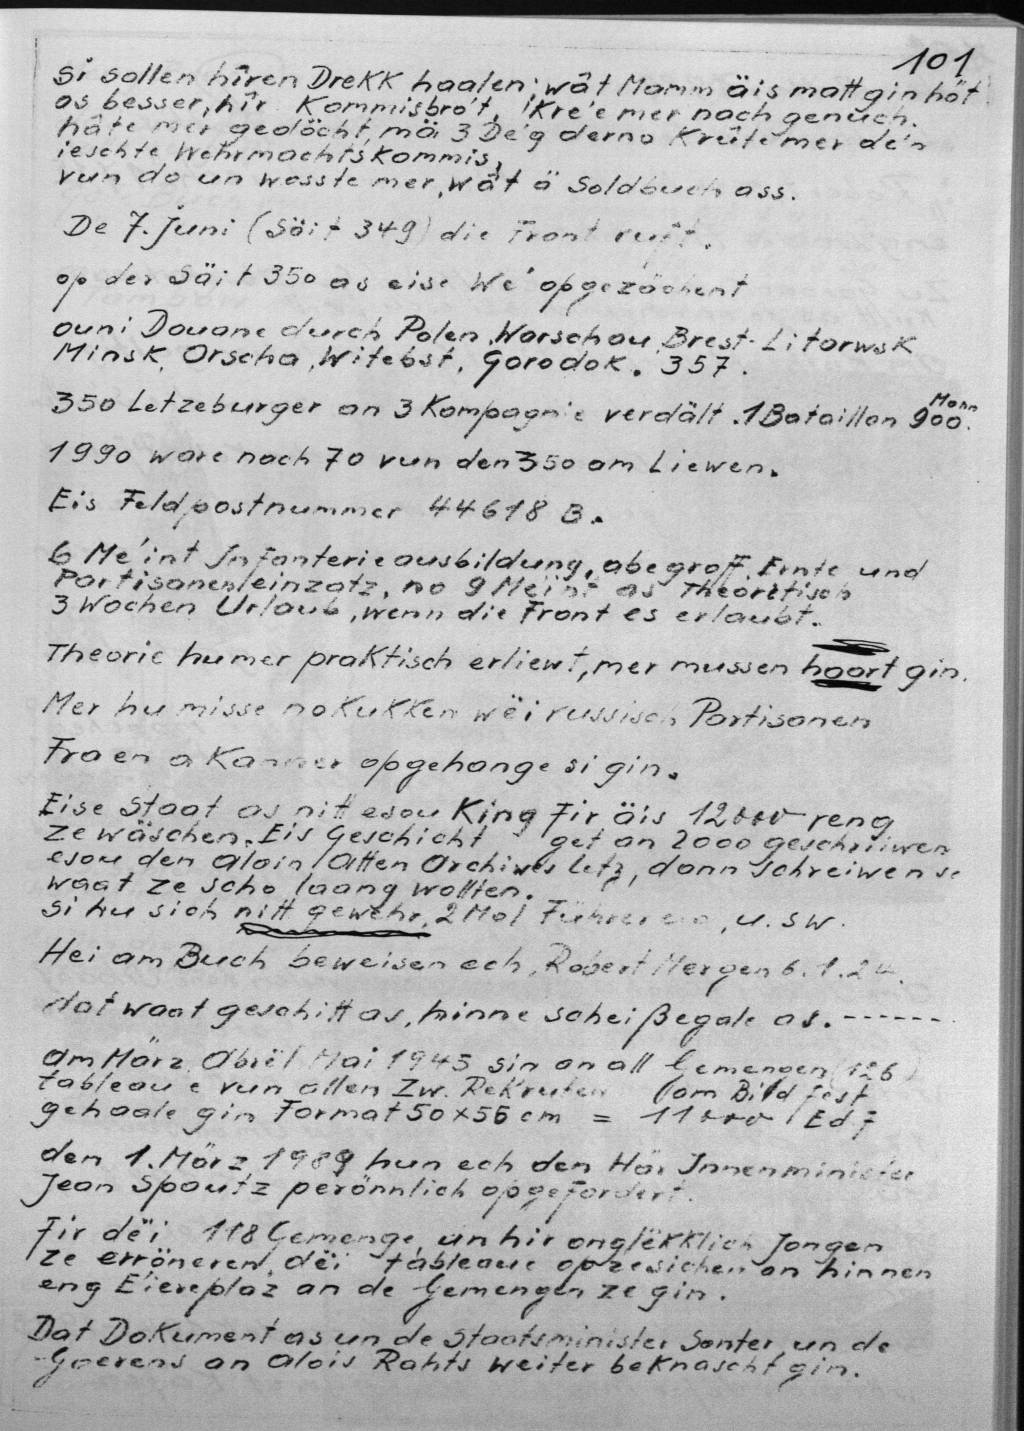 101
si sollen hîren DreKK haalen; wât Mamm äis matt gin höt
as besser, hîr Kommisbro't, Kre'e mer nach genuch.
hâte mer gedöcht, mä 3 De'g derno Krûte mer de'n
ieschte Wehrmachtskommis,
vun do un wosste mer, wât ä Soldbuch ass.
De 7. Juni (Säit 349) die Front ruft.
op der Säit 350 as eise We' opgezächent
ouni Douane durch Polen, Warschau, Brest-Litowsk
Minsk, Orscha, Witebst, Gorodok. 357.
350 Letzeburger an 3 Kompagnie verdält. 1 Bataillon 900 Mann.
1990 ware nach 70 vun den 350 am Liewen.
Eis Feldpostnummer 44618 B.
6 Me'int Infanterieausbildung, abegraff. Ernte und
Partisaneneinzatz, no 9 Mëint as Theoretisch
3 Wochen Urlaub, wenn die Front es erlaubt.
Theorie humer praktisch erliewt, mer mussen haart gin.
Mer hu misse noKuKKen wëi russisch Partisanen
Fraen a Kanner opgehange si gin.
Eise Staat as nitt esou King fir äis 12000 reng
ze wäschen. Eis Geschicht get an 2000 geschriwen
esou den aloin Atten Archives letz, dann schreiwen se
waat ze scho laang wollten.
Si hu sich nitt gewehr, 2 Mol Führer, u.s w.
Hei am Buch beweisen ech, Robert Mergen 6.1.24.
dat waat geschitt as, hinne scheißegale as. ------
am März, Abrël Mai 1945 sin an all Gemengen (126)
tableaue vun allen Zw. ReKruten (am Bild fest
gehaale gin Format 50 x 56 cm = 11000 Ed F
den 1. März 1989 hun ech den Här Innenminister
Jean Spautz perönnlich opgefordert.
Fir dëi 118 Gemenge, un hir onglëkklich Jongen
ze erröneren, dëi tableaue opzesichen an hinnen
eng Eiereplaz an de Gemengen ze gin.
Dat DoKument as un de Staatsminister Santer, un de
Goerens an Alois Rahts weiter beKnascht gin.